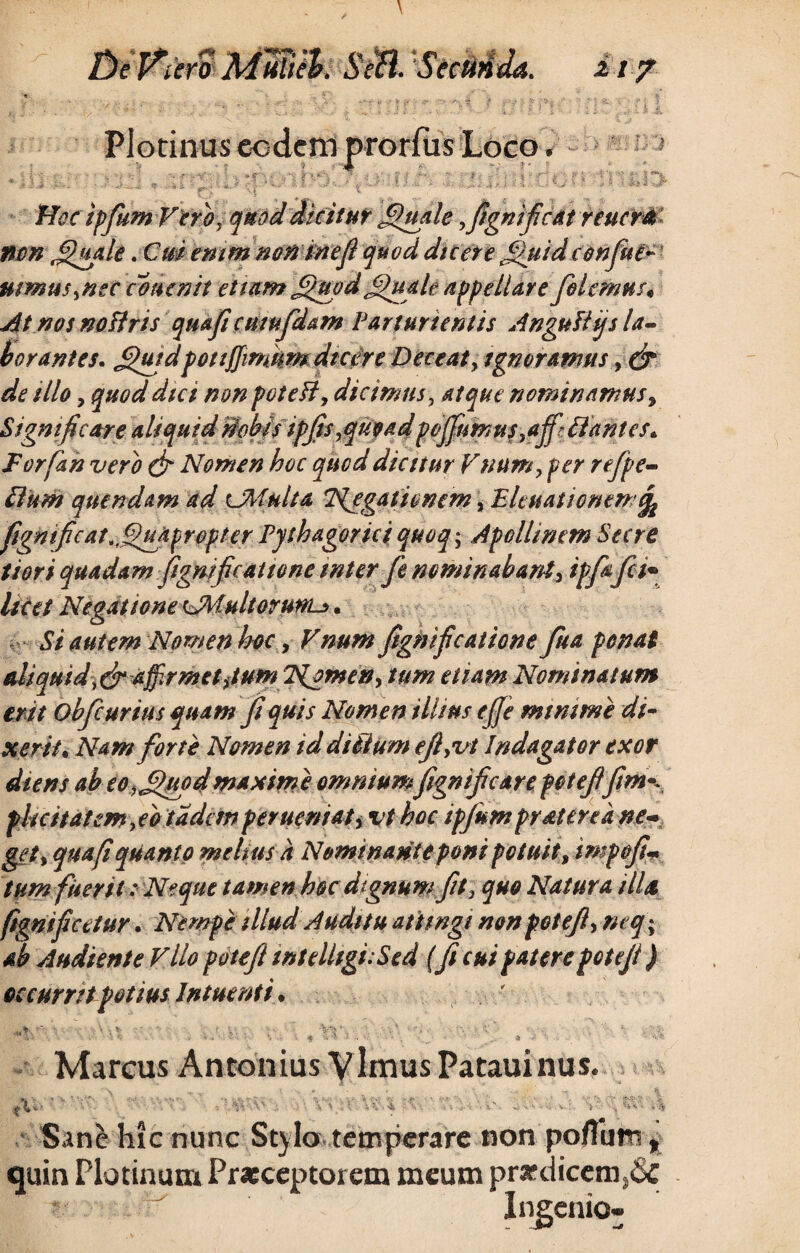 De Viero Muliel. Sect. Secunda. 217
Plotinus eodem prorſus Loco.
Hoc ipſum Vero, quod dicitur Quale, ſignificat reuera
non Quale. Cui enim non ineſt quod dicere Quid conſue-
uimus, nec conuenit etiam Quod Quale appellare ſolemus.
At nos noſtris quaſi cuiuſdam Parturientis Anguſtijs la-
borantes. Quid potiſſimùm dicere Deceat, ignoramus, &
de illo, quod dici non poteſt, dicimus, atque nominamus,
Significare aliquid nobis ipſis, quoad poſſumus, affectantes.
Forſan verò & Nomen hoc quod dicitur Vnum, per reſpe-
ctum quendam ad Multa Negationem, Eleuationemq;
ſignificat. Quapropter Pythagorici quoq; Apollinem Secre
tiori quadam ſignificatione inter ſe nominabant, ipſa ſci-
licet Negatione Multorum.
Si autem Nomen hoc, Vnum ſignificatione ſua ponat
aliquid, & affirmet, tum Nomen, tum etiam Nominatum
erit Obſcurius quam ſi quis Nomen illius eſſe minimè di-
xerit. Nam fortè Nomen id dictum eſt, vt Indagator exor
diens ab eo, Quod maximè omnium ſignificare poteſt ſim-
plicitatem, eò tãdem perueniat, vt hoc ipſum prætereà ne-
get, quaſi quanto melius à Nominante poni potuit, impoſi-
tum fuerit: Neque tamen hoc dignum ſit, quo Natura illa
ſignificetur. Nempè illud Auditu attingi non poteſt, neq;
ab Audiente Vllo poteſt intelligi: Sed (ſi cui patere poteſt)
occurrit potius Intuenti.
Marcus Antonius Vlmus Patauinus.
Sanè hîc nunc Stylo temperare non poſſum,
quin Plotinum Præceptorem meum prædicem, &
Ingenio-